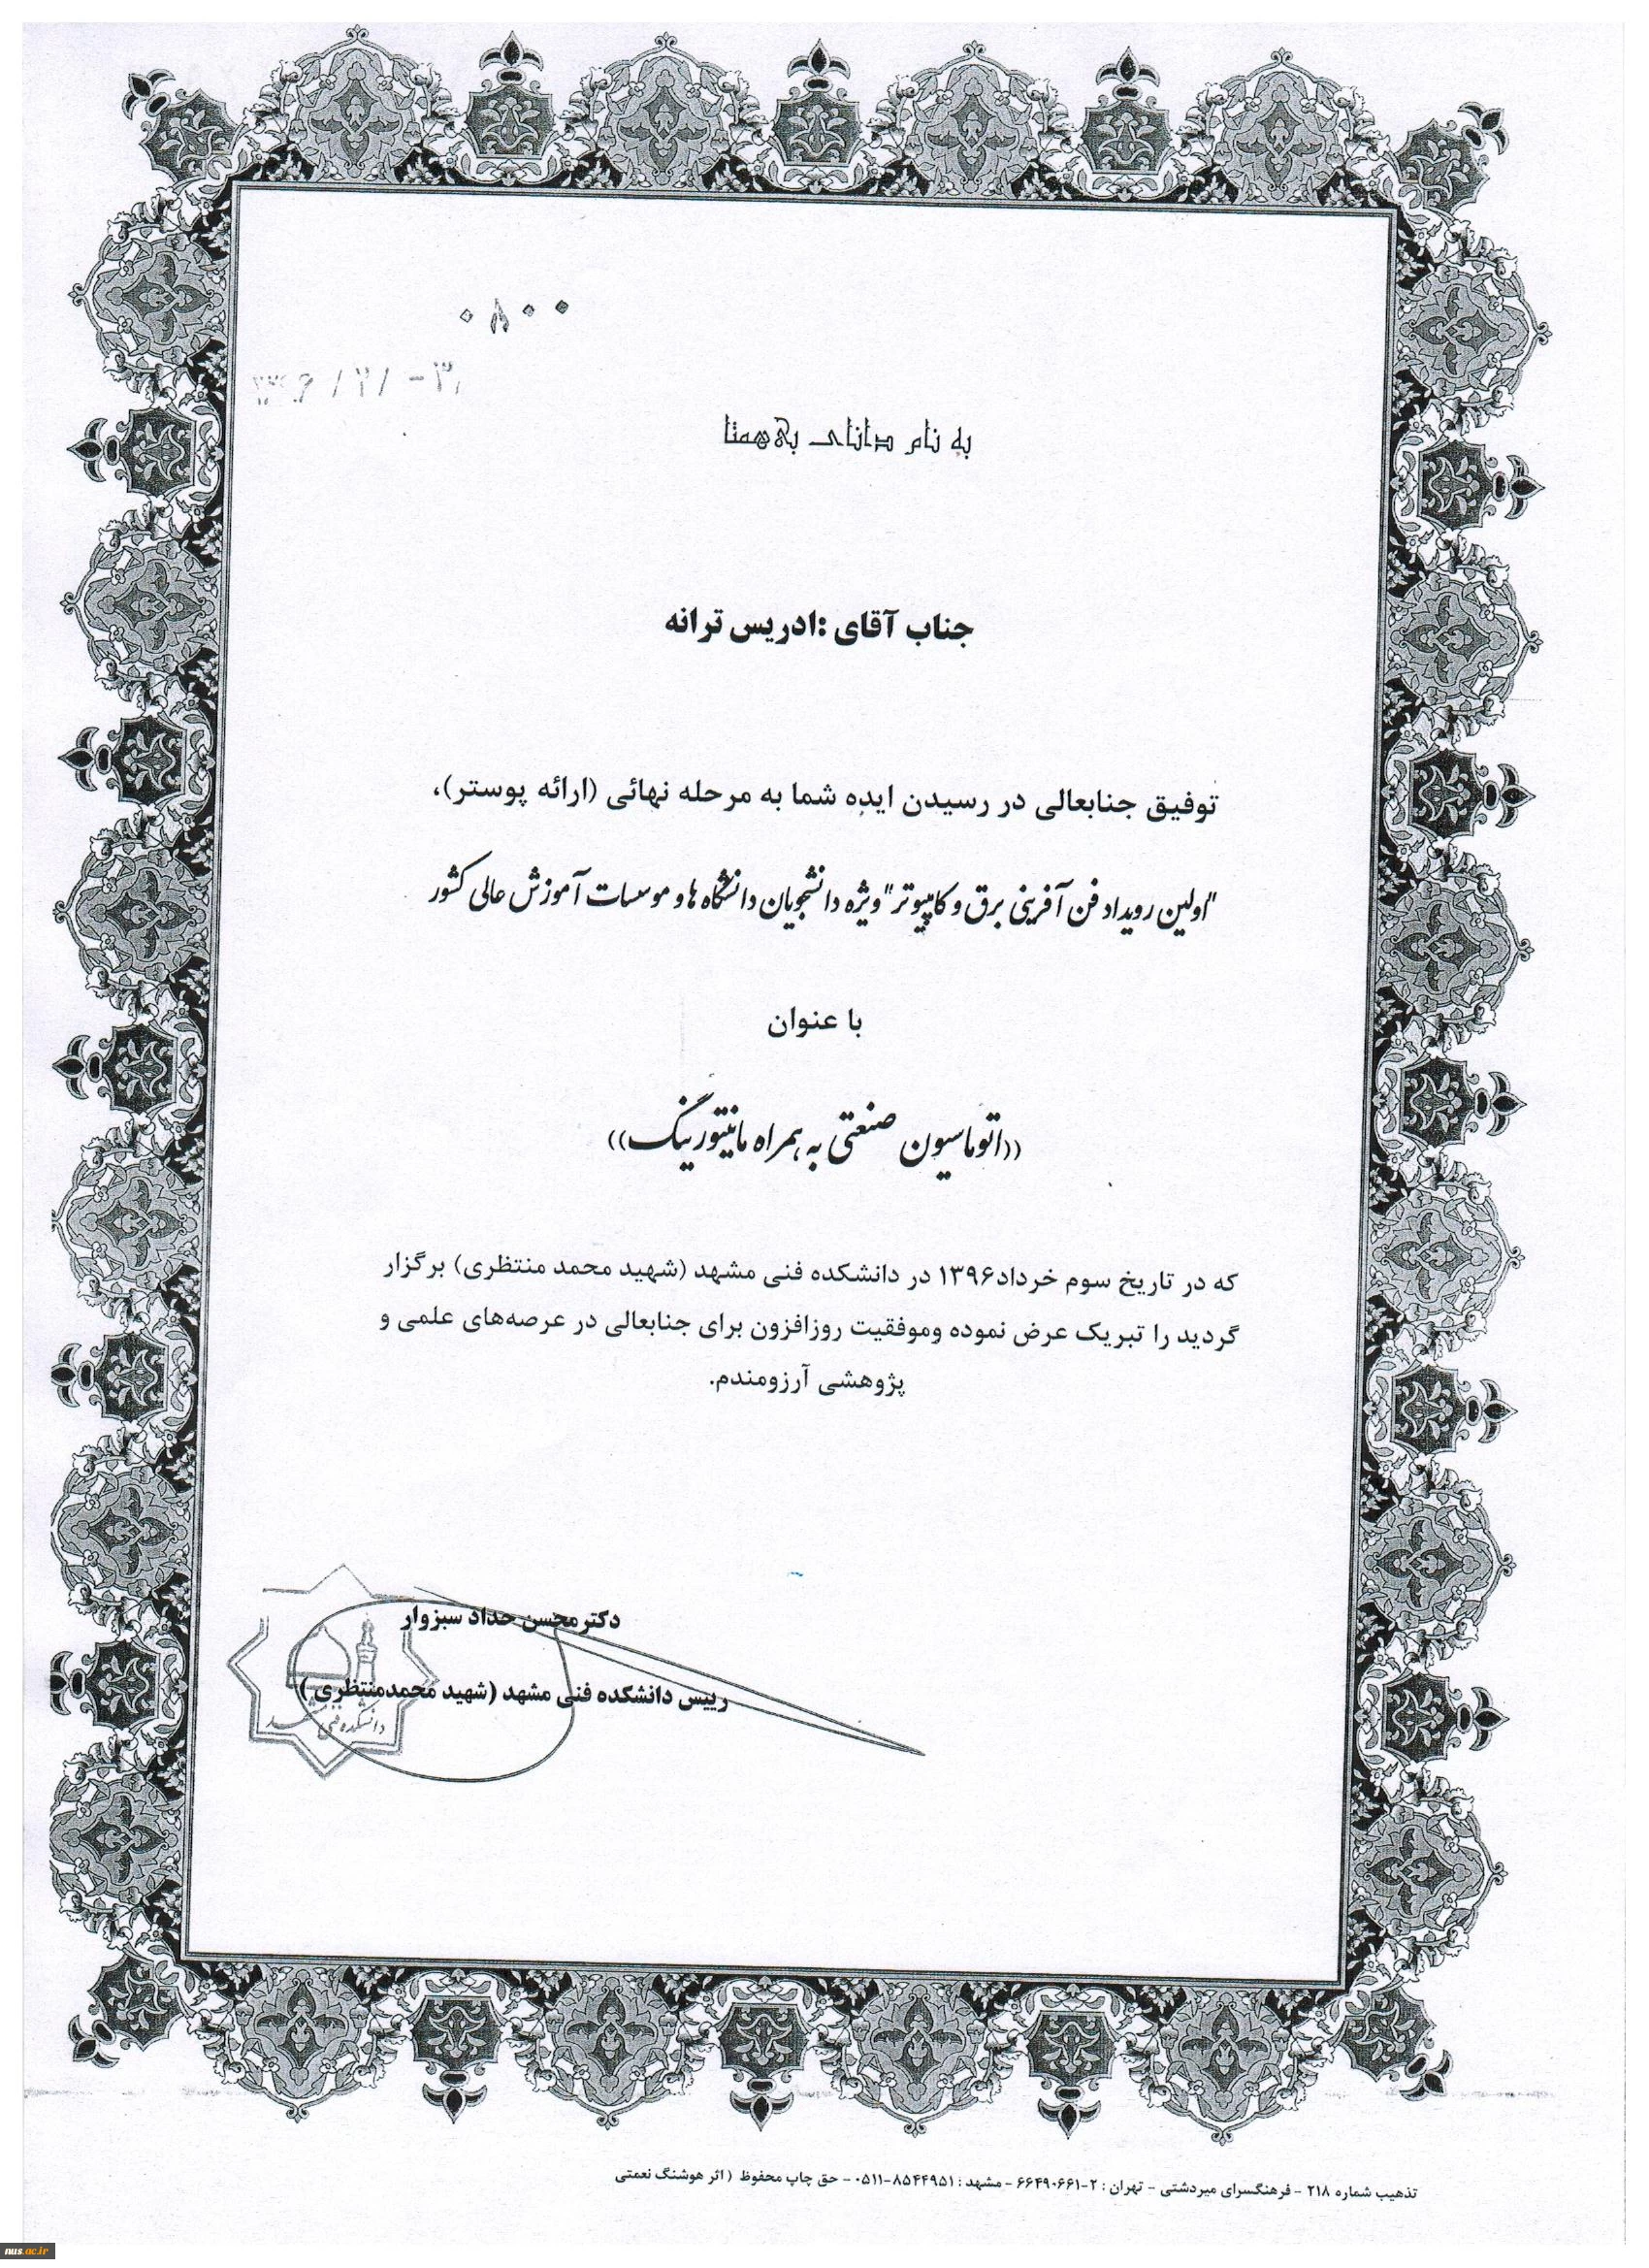 ۰۸۰۰
به نام دانای بی‌همتا
جناب آقای :ادریس ترانه
توفیق جنابعالی در رسیدن ایده شما به مرحله نهائی (ارائه پوستر)،
"اولین رویداد فن آفرینی برق و کامپیوتر" ویژه دانشجویان دانشگاه ها و موسسات آموزش عالی کشور
با عنوان
((اتوماسیون صنعتی به همراه مانیتورینگ))
که در تاریخ سوم خرداد۱۳۹۶ در دانشکده فنی مشهد (شهید محمد منتظری) برگزار
گردید را تبریک عرض نموده وموفقیت روزافزون برای جنابعالی در عرصه‌های علمی و
پژوهشی آرزومندم.
دکترمحسن حداد سبزوار
رییس دانشکده فنی مشهد (شهید محمدمنتظری )
دانشکده فنی مشهد
تذهیب شماره ۲۱۸ - فرهنگسرای میردشتی - تهران : ۲-۶۶۴۹۰۶۶۱ - مشهد : ۸۵۴۴۹۵۱-۰۵۱۱ - حق چاپ محفوظ ( اثر هوشنگ نعمتی
nus.ac.ir